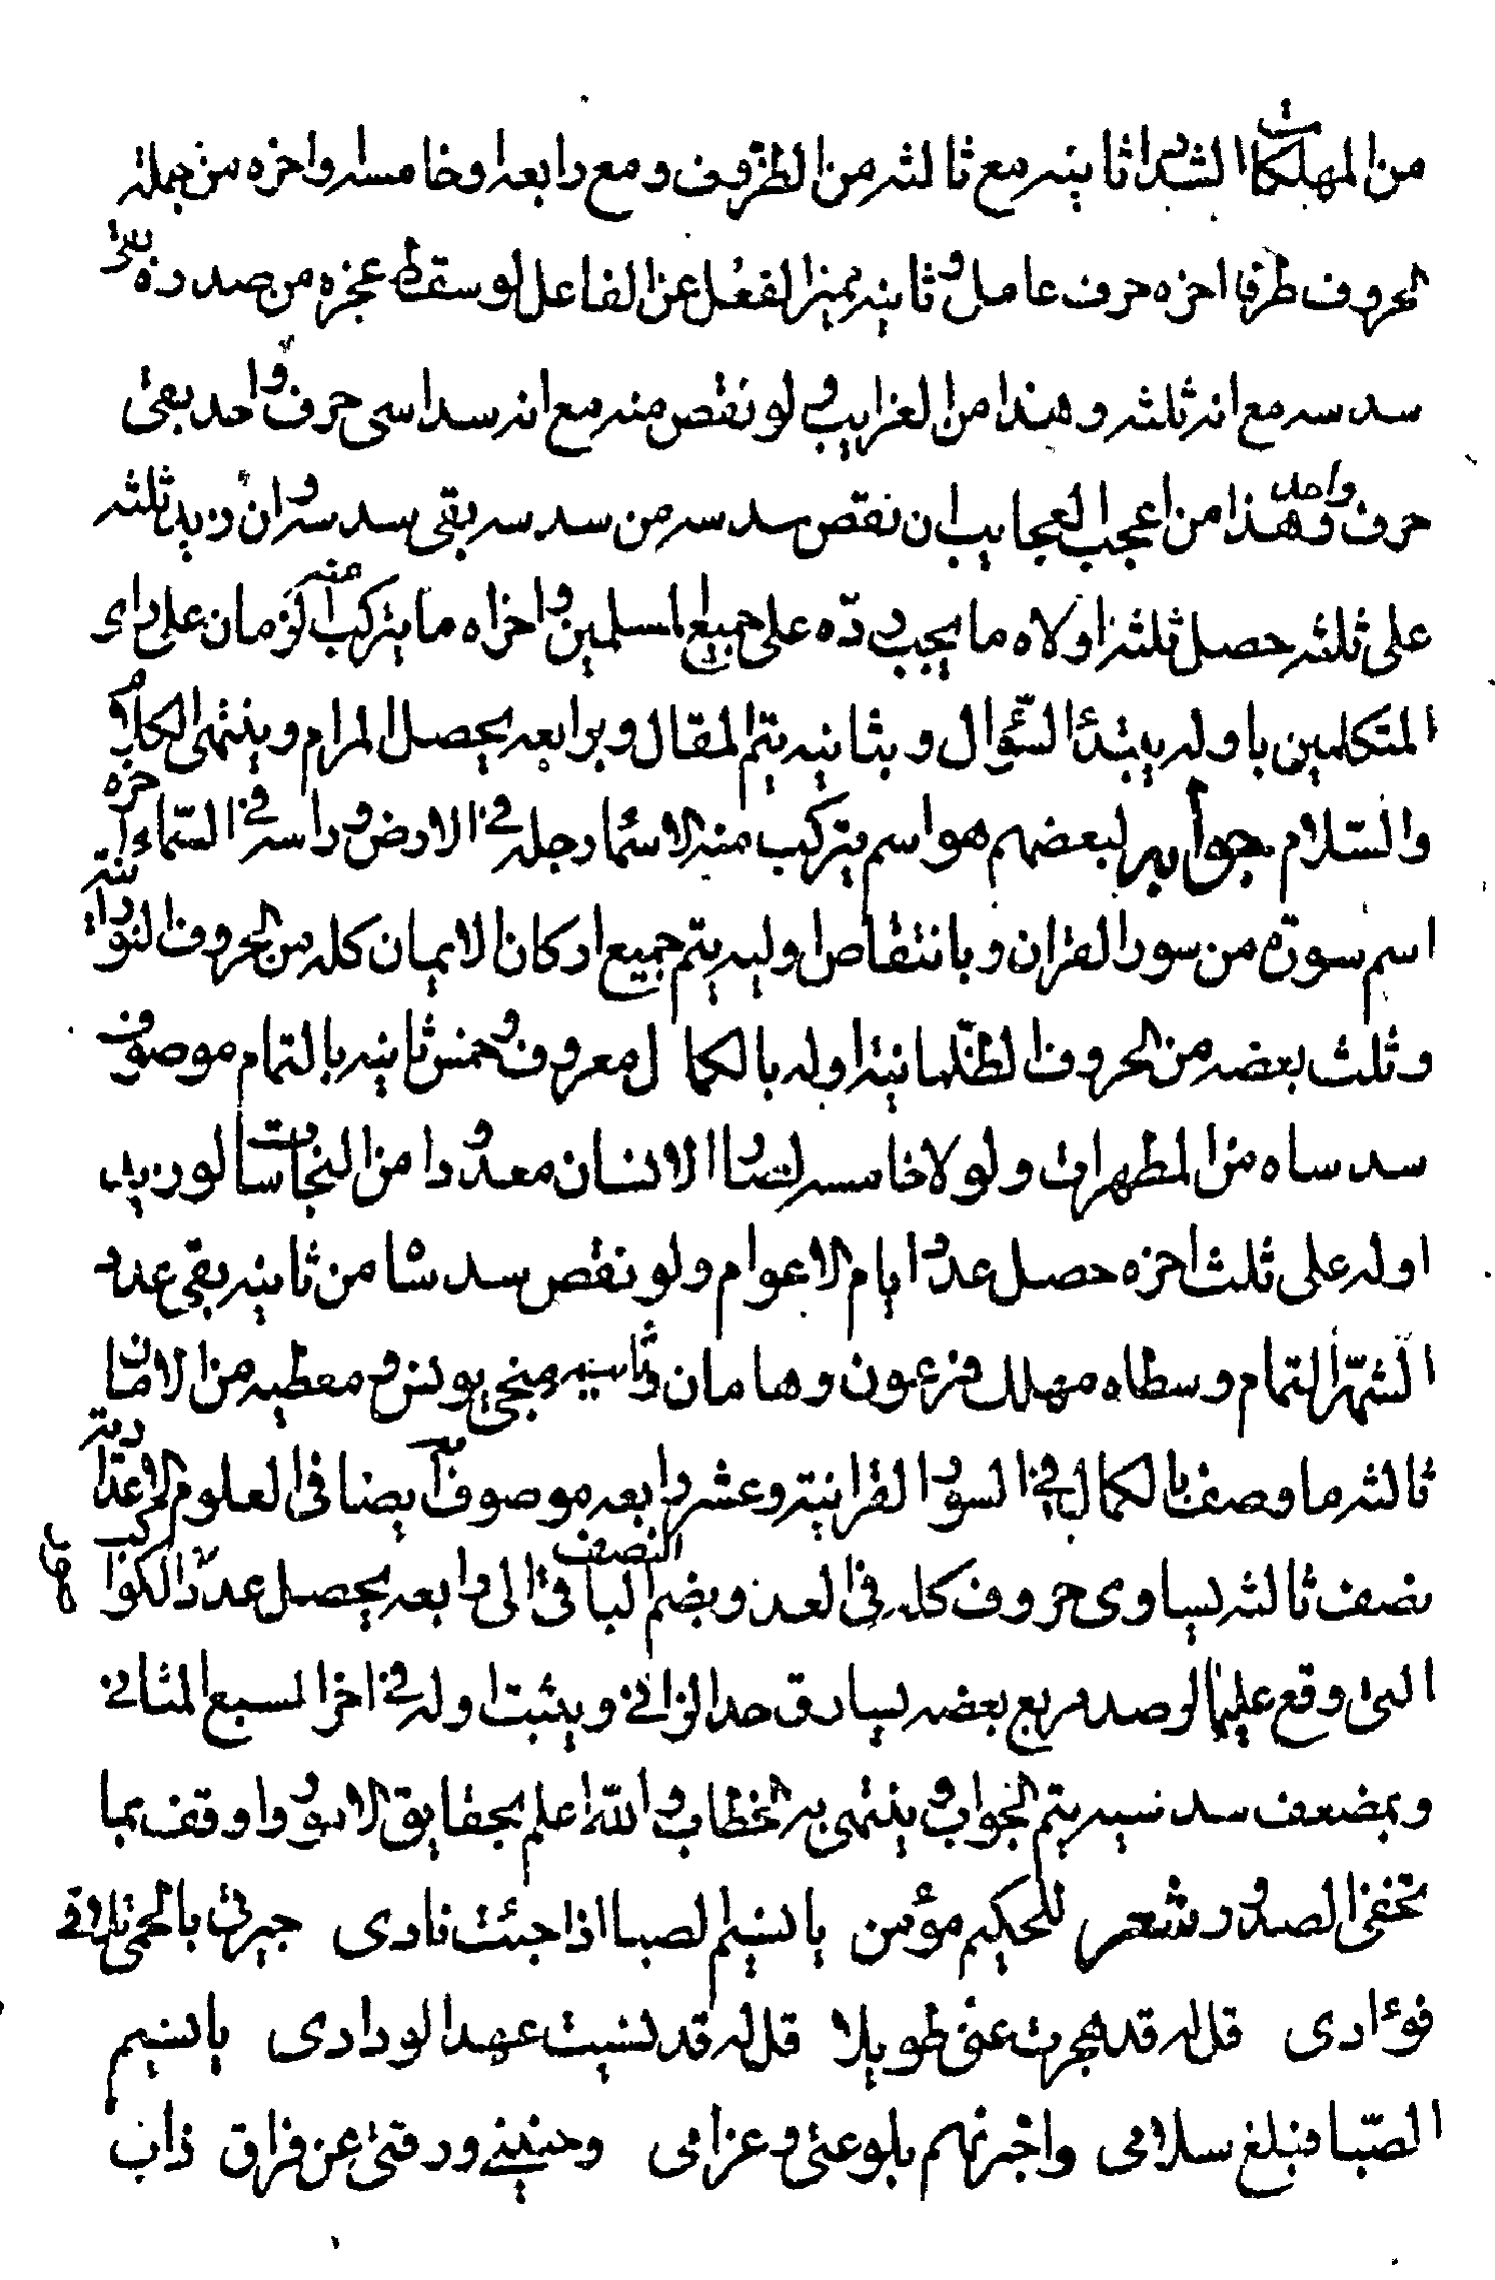 من المهلكات الشداد ثانيه مع ثالثه من الظروف ومع رابعه او خامسه واخره من جملة
الحروف طرفا اخره حرف عامل وثانيه يميز الفعل عن الفاعل لو سقط عجزه من صدره بقى
سدسه مع انه ثلثه وهذا من الغرايب ولو نقص منه مع انه سداسى حرف واحد بقى
حرف واحد وهذا من اعجب العجايب ان نقص سدسه من سدسه بقى سدسه وان زيد ثلثه
على ثلثه حصل ثلثه اولاه ما يجب رده على جميع المسلمين واخراه ما يتركب منه الزمان على راى
المتكلمين باوله يبتدأ السؤال وبثانيه يتم المقال وبرابعه يحصل المرام وينتهى الكلام
والسلام جوابه لبعضهم هو اسم يتركب منه الاسما رجله فى الارض وراسه فى السماء اخره
اسم سورة من سور القران وبانتقاص اوليه يتم جميع اركان الايمان كله من الحروف النورانية
وثلث بعضه من الحروف الظلمانية اوله بالكمال معروف وخمس ثانيه بالتمام موصوف
سدساه من المطهرات ولولا خامسه لصار الانسان معدودا من النجاسات لو زيد
اوله على ثلث اخره حصل عدد ايام الاعوام ولو نقص سدسا من ثانيه بقى عدد
الشهر التمام وسطاه مهلك فرعون وهامان وثانيه منجى يونس ومعطيه من الامان
ثالثه ما وصف بالكمال فى السور القرانية وعشر رابعه موصوف ايضا فى العلوم الاعدادية
نصف ثالثه يساوى حروف كله فى العد وبضم النصف الباقى الى رابعه يحصل عدد الكواكب
التى وقع عليها الرصد مربع بعضه يساوق حد الزانى ويثبت اوله فى اخر السبع المثانى
وبمضعف سدسيه يتم الجواب وينتهى به الخطاب والله اعلم بحقايق الامور واوقف بما
تخفى الصدور شعر للحكيم مؤمن يا نسيم الصبا اذا جئت نادى جيرتى بالحمى تلاقى
فؤادى قل له قد هجرت عنى طويلا قل له قد نسيت عهد الودادى يا نسيم
الصبا فبلغ سلامى واخبرنهم بلوعتى وغرامى وحنينى ورقتى عن فراق ذاب